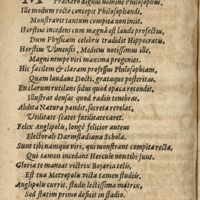 Præclaro dignus nomine Philosophus,
Ille modum recte concepit Philosophandi,
Monstravit tantum conspicienda neminie.
Horstius incedens cum magnâ est laude profectus,
Dum Physicam celebris tradidit Hipporatis,
Horstius Vlmensis, Medicus notissimus ille,
Magni nempe viri maxima progenies.
Hic facilem & claram profess⁹ Philosophiam,
Quam laudant Docti, grataque posteritas,
En clarum rutilans sidus quod opaca recondit,
Illustrat densâs quod radiis tenebras.
Abdita Natura pandit, secreta revelat,
Utilitate scatet futilitate caret.
Felix Anglipolis, longè felicior autem
Electorali Darmstadiana Schola.
Sunt tibi namque viri, qui monstrant compita recta,
Qui tamen incedant Hercule non tibi sunt.
Gloria te maneat victrix Bojaria tellis,
Est tua Metropolis ricta tamen studiis,
Anglipoli currit, studii lectissima matrix,
Sed statim primo deficit in stadio.